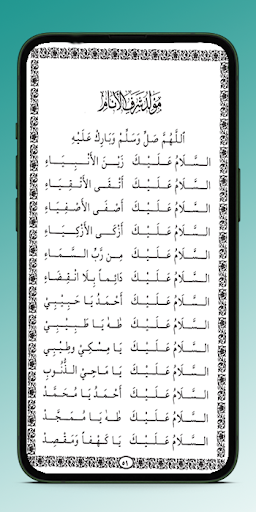 مولد شرف الأنام
اَللّٰهُمَّ صَلِّ وَسَلِّمْ وَبَارِكْ عَلَيْهِ
اَلسَّلَامُ عَلَيْكَ زَيْنَ الْأَنْبِيَاءِ
اَلسَّلَامُ عَلَيْكَ أَتْقَى الْأَتْقِيَاءِ
اَلسَّلَامُ عَلَيْكَ أَصْفَى الْأَصْفِيَاءِ
اَلسَّلَامُ عَلَيْكَ أَزْكَى الْأَزْكِيَاءِ
اَلسَّلَامُ عَلَيْكَ مِنْ رَبِّ السَّمَاءِ
اَلسَّلَامُ عَلَيْكَ دَائِمًا بِلَا انْقِضَاءِ
اَلسَّلَامُ عَلَيْكَ أَحْمَدُ يَا حَبِيبِيْ
اَلسَّلَامُ عَلَيْكَ طٰهٰ يَا طَبِيبِيْ
اَلسَّلَامُ عَلَيْكَ يَا مِسْكِيْ وَطِيبِيْ
اَلسَّلَامُ عَلَيْكَ يَا مَاحِيَ الذُّنُوبِ
اَلسَّلَامُ عَلَيْكَ أَحْمَدُ يَا مُحَمَّدْ
اَلسَّلَامُ عَلَيْكَ طٰهٰ يَا مُمَجَّدْ
اَلسَّلَامُ عَلَيْكَ يَا كَهْفًا وَمَقْصِدْ
٥١